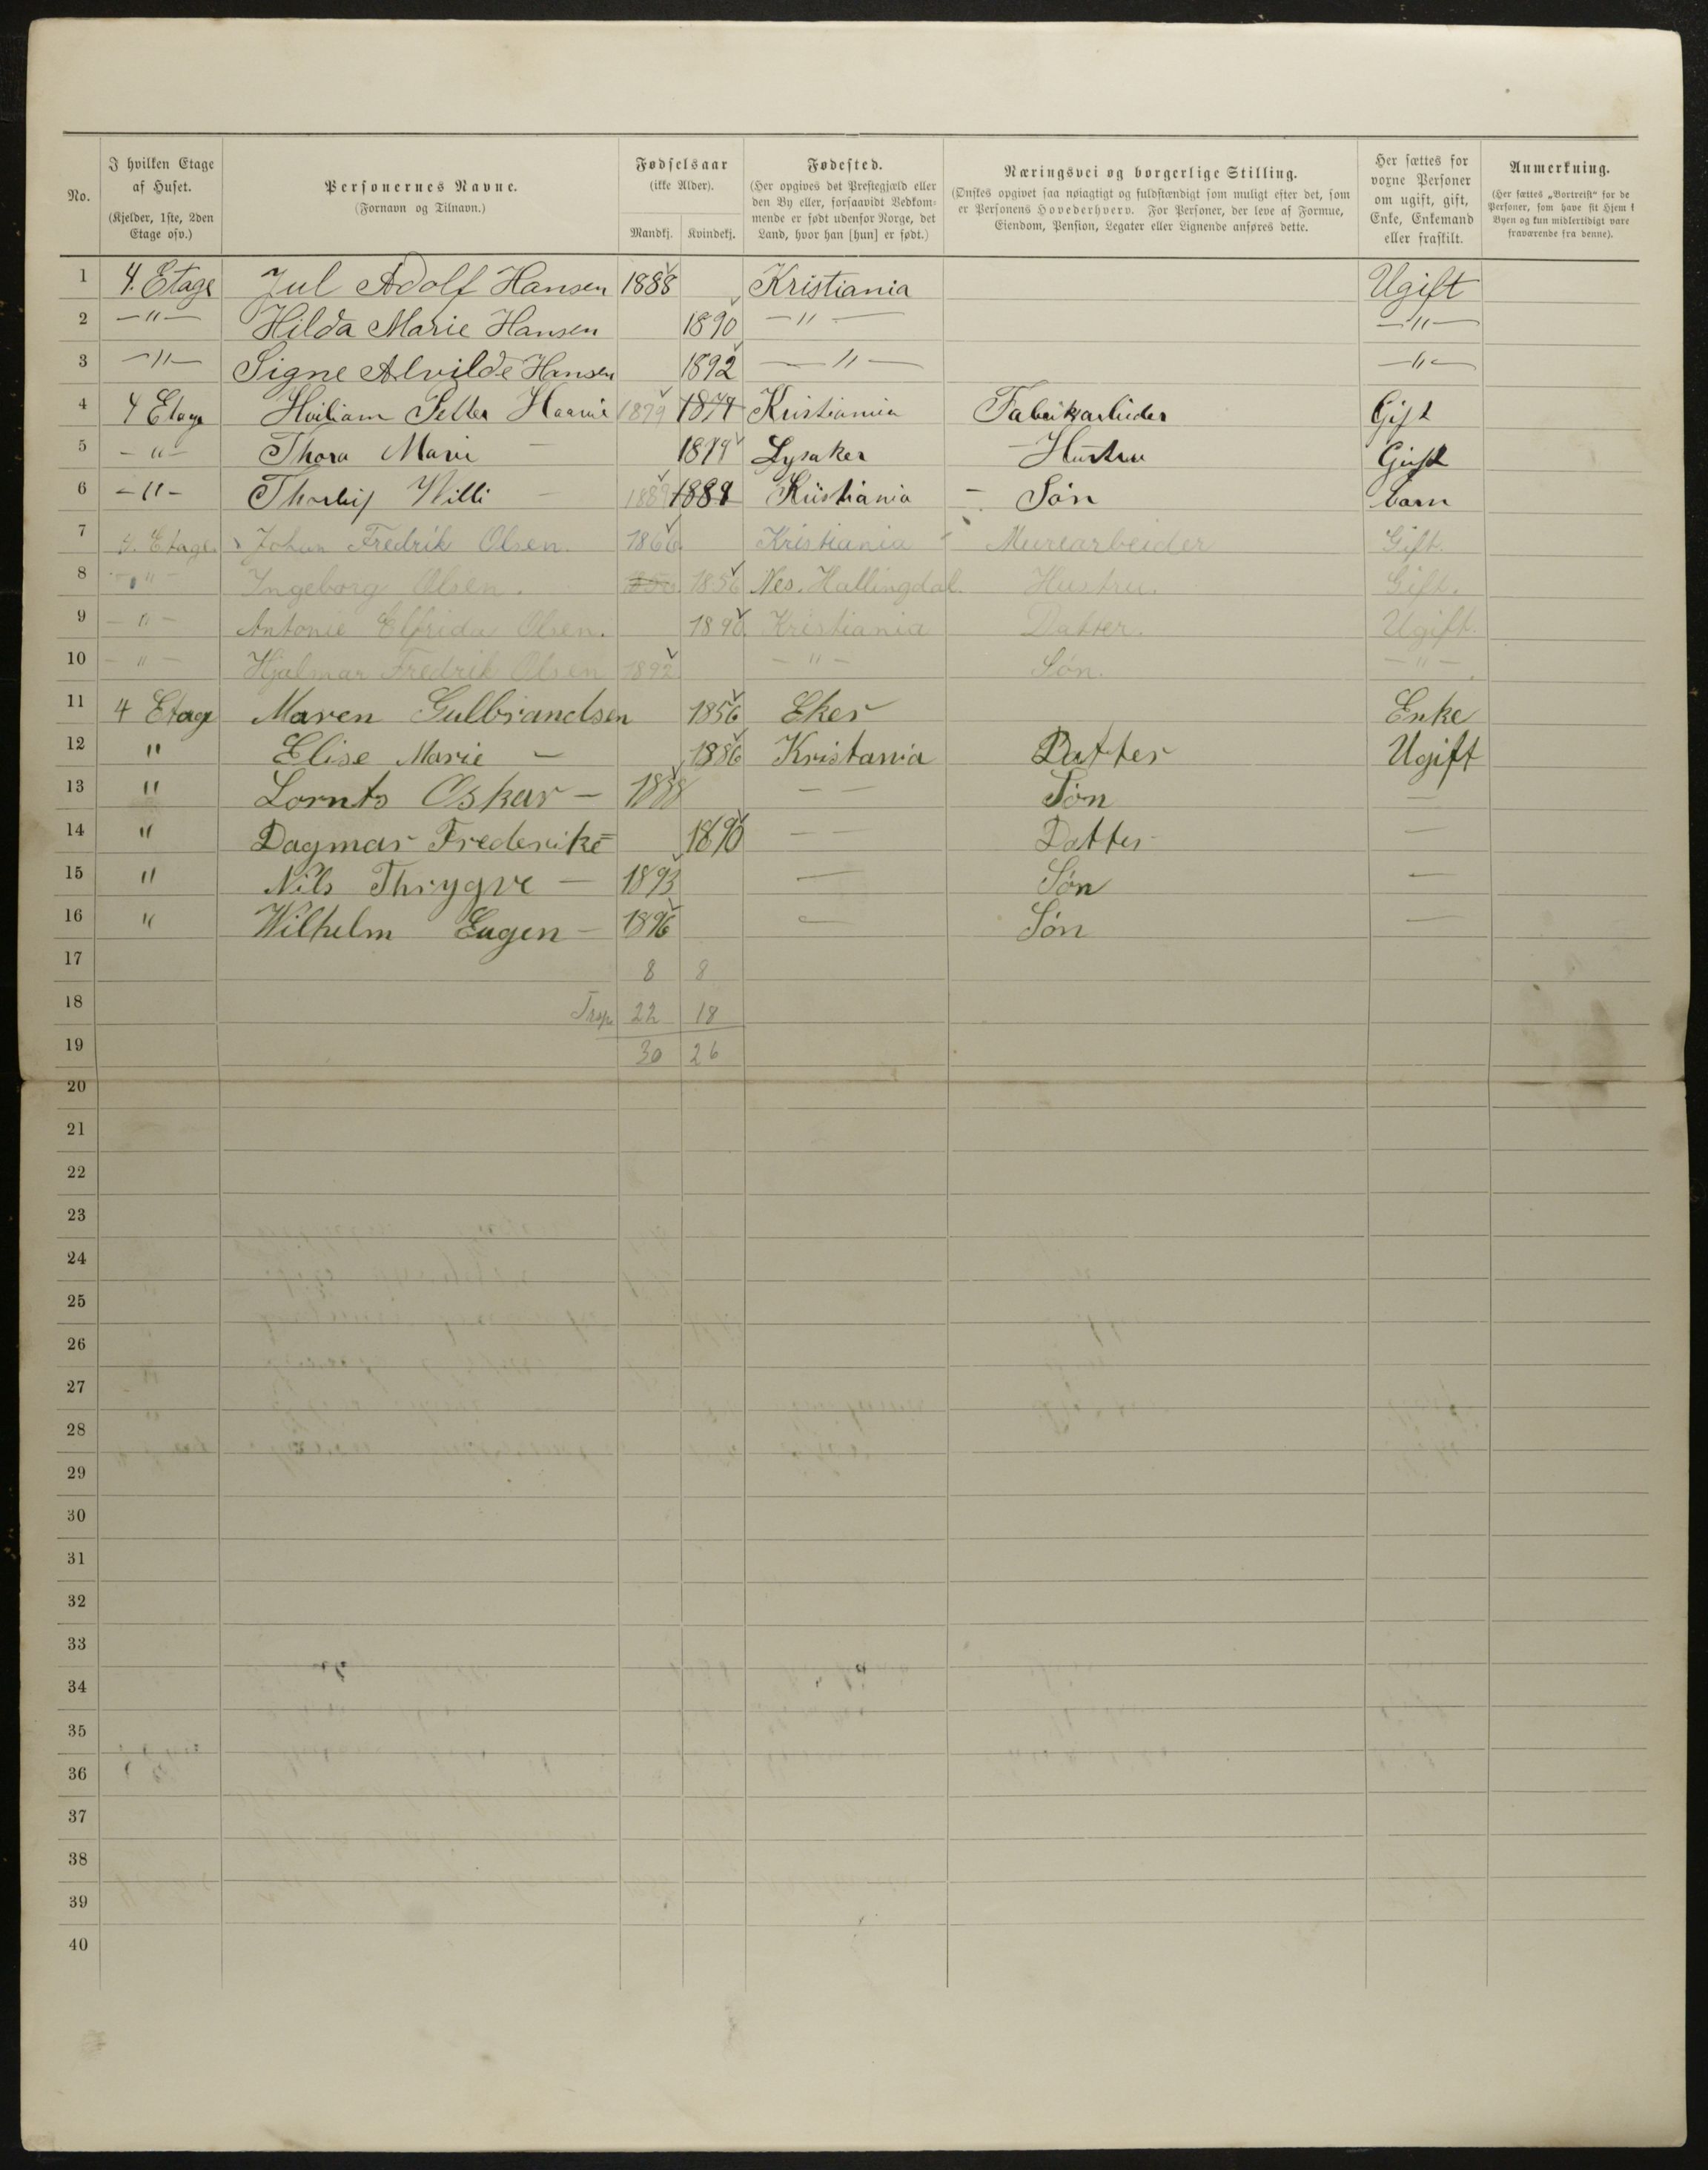 No.
I hvilken Etage af Huset.
(Kjelder, 1ste, 2den Etage osv.)
Personernes Navne.
(Fornavn og Tilnavn.)
Fødselsaar
(ikke Alder).
Mandkj. Kvindekj.
Fødested.
(Her opgives det Prestegjæld eller den By eller, forsaavidt Vedkommende er født udenfor Norge, det Land, hvor han [hun] er født.)
Næringsvei og borgerlige Stilling.
(Ønskes opgivet saa nøiagtigt og fuldstændigt som muligt efter det, som er Personens Hovederhverv. For Personer, der leve af Formue, Eiendom, Pension, Legater eller Lignende anføres dette.
Her sættes for voxne Personer om ugift, gift, Enke, Enkemand eller fraskilt.
Anmerkning.
(Her sættes „Bortreist“ for de Personer, som have sit Hjem i Byen og kun midlertidigt vare fraværende fra denne).
1 4. Etage Jul Adolf Hansen 1888 Kristiania Ugift
2 —"— Hilda Marie Hansen 1890 —"— —"—
3 —"— Signe Alvilde Hansen 1892 —"— —"—
4 4 Etage Petter 1879 Kristiania Fabrikarbeider Gift
5 —"— Thora Marie — 1879 Lysaker — Hustru Gift
6 —"— Thorleif Willi — Kristiania — Søn barn
7 4. Etage. Johan Fredrik Olsen. 1866 Kristiania Murearbeider Gift.
8 —"— Ingeborg Olsen. 1856 Nes. Hallingdal. Hustru. Gift.
9 —"— Antonie Elfrida Olsen. 1890. Kristiania Datter. Ugift.
10 —"— Hjalmar Fredrik Olsen 1892 —"— Søn. —"—
11 4 Etage Maren Gulbrandsen 1856 Eker Enke
12 " Elise Marie — 1886 Kristania Datter Ugift
13 " Lornts Oskar — 1888 — — Søn —
14 " Dagmar Frederike — 1890 — — Datter —
15 " Nils Thrygve — 1893 — Søn —
16 " Wilhelm Eugen — 1896 — Søn —
17 8 8
18 Trsp. 22 18
19 30 26
20
21
22
23
24
25
26
27
28
29
30
31
32
33
34
35
36
37
38
39
40